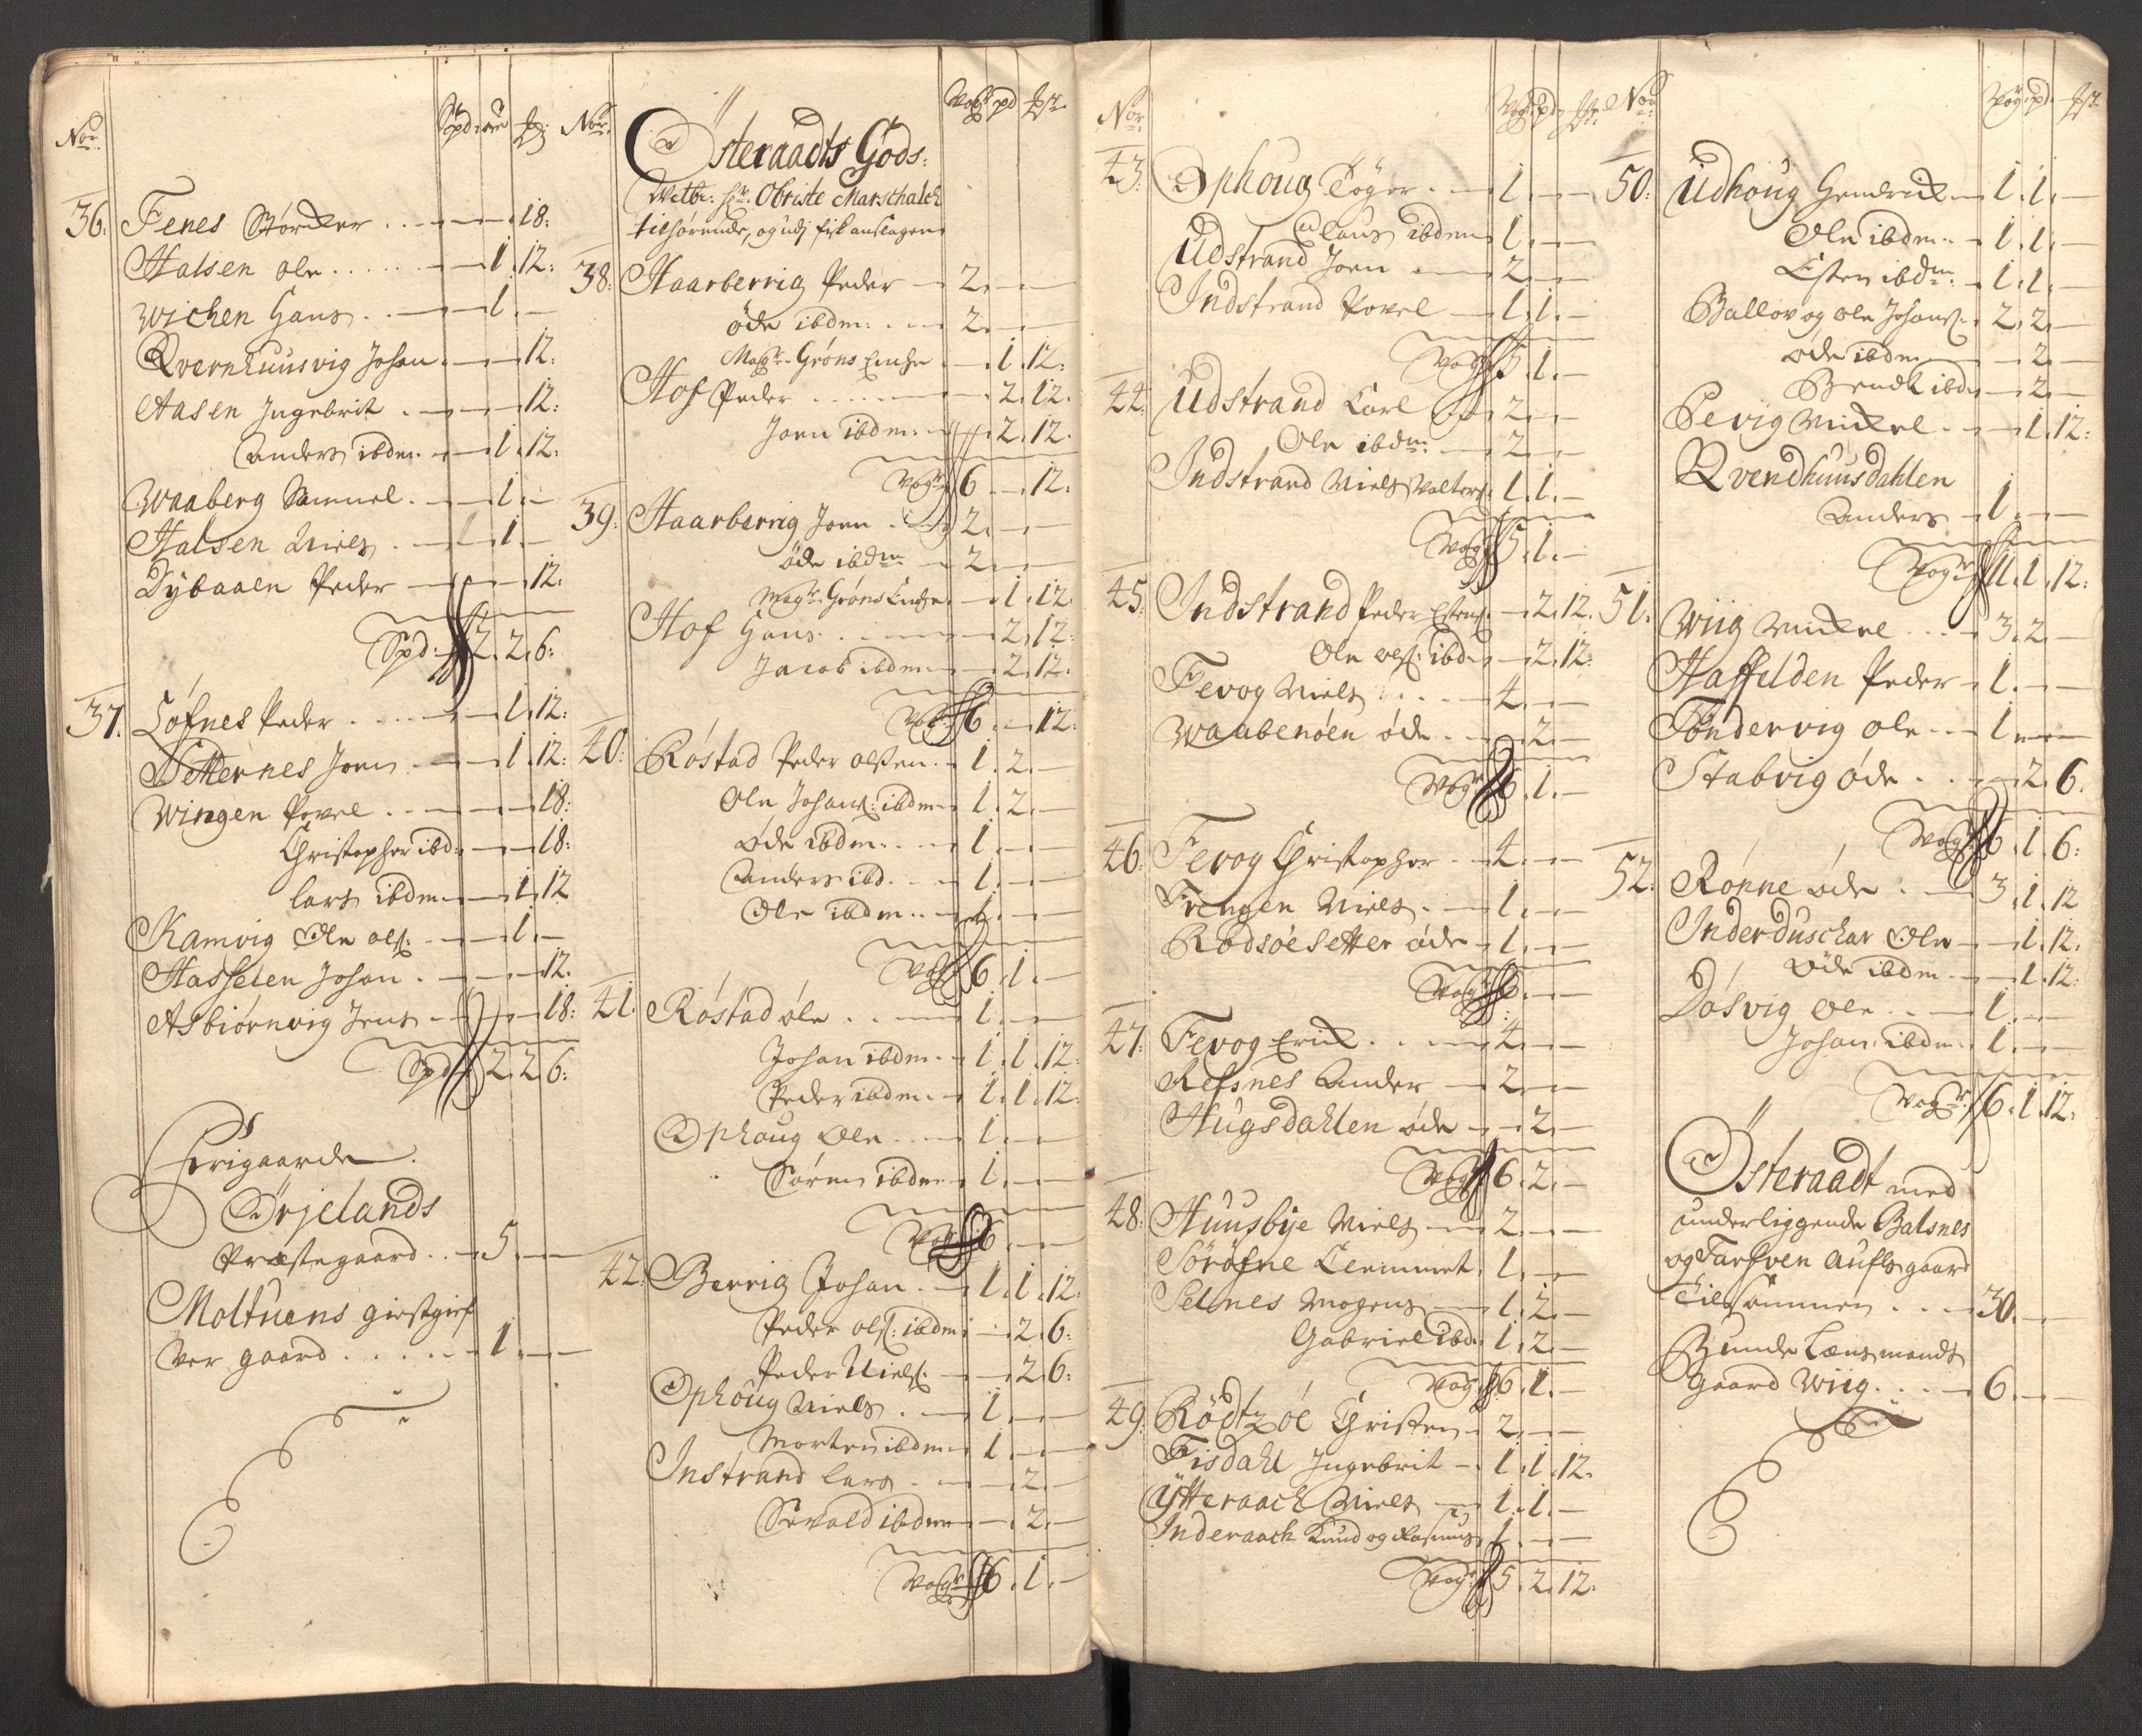 Nor. Spd. ore
36: Fenes Størcker . . — — 18:
Halsen ole . . . . . — 1. 12:
Wichen Hans . . — 1. —
Qvernhuusvig Johan . — — 12:
Aasen Ingebrit . — — 12:
Anders ibdm. — 1. 12.
Waaberg Samuel . — 1. —
Halsen Niels . — 1. —
Dybaaen Peder — — 12:
Spd: 2. 2. 6:
37. Løfnes Peder . . . — 1. 12:
Setternes Joen . — 1. 12:
Wingen Povel . . — — 18:
Christopher ibd: — — 18:
lars ibdm — 1. 12
Ramvig Ole ols: — 1. —
Hasselen Johan . — — 12.
Asbiørnvig Jens — — 18:
Spd 2. 2. 6:
Frigaarde.
Ørjelands
Præstegaard . . — 5. — —
Moltuens giestgif
ver gaard . . . . . — 1. — —
Nor. Vog pd
Østeraadts Gods:
Welb: Hr: Obriste Marschalck
tilhørende, og udj fisk anslagen
38: Haarberrig Peder — 2. — —
öde ibdm: . . — 2. — —
Magr Grøns Enche . — 1. 12:
Hof Peder . . . . — 2. 12.
Joen ibdm: — 2. 12.
Vogr 6. — 12:
39: Haarberrig Joen . — 2. — —
öde ibdm — 2. — —
Magr. Grøns Enche . — 1. 12.
Hof Hans . . — 2. 12:
Jacob ibdm. — 2. 12.
Vogr 6. — 12:
40: Røstad Peder olsen . — 1. 2. —
Ole Johans: ibdm 1. 2. —
Øde ibdm. . — 1. — —
Anders ibd. . — 1. — —
Ole ibdm . . — 1. — —
Vogr 6. 1. —
41. Røstad ole . . — 1. — —
Johan ibdm . — 1. 1. 12:
Peder ibdm . — 1. 1. 12:
Ophaug Ole . . — 1. — —
Søren ibdm — 1. — —
Vogr 6. — —
42: Berrig Johan . — 1. 1. 12.
Peder ols: ibdm: — 2. 6:
Peder Niels: — 2. 6:
Ophoug Niels . — 1. — —
Morten ibdm — 1. — —
Instrand lars . — — 2. —
Sivald ibdm — — 2. —
Vogr 6. 1. —
Nor. Vog. pd
43: Ophoug Tøger . — 1. — —
Claus ibdm 1. — —
Udstrand Joen — 2. — —
Indstrand Povel — 1. 1. —
Vogr 5. 1. —
44: Udstrand Carl — 2. — —
Ole ibdm: — 2. — —
Indstrand Niels Valters: 1. 1. —
Vogr 5. 1. —
45: Indstrand Peder Estens: — 2. 12.
Ole ols: ibd — 2. 12:
Fevog Niels . . — 4. — —
Waabenöen öde . — — 2. —
Vogr 6. 1. —
46: Fevog Christopher . — 4. — —
Frengen Niels . — 1. — —
Rodsöesetter öde — 1. — —
Vogr 6. — —
47: Fevog Erick . . — 4. — —
Refsnes Ander — 2. — —
Hugsdahlen öde — — 2. —
Vogr 6. 2. —
48: Huusbye Niels — 2. — —
Söröfne Clemmet 1. — —
Selnes Mogens — 1. 2. —
Gabriel ibd: 1. 2. —
Vogr 6. 1. —
49: Rödtzöe Christen — 2. — —
Fisdahl Ingebrit — 1. 1. 12.
Ytteraach Niels — 1. 1. —
Inderaach Knud og Rasmus 1. — —
Vogr 5. 2. 12:
Nor Vogr. pd.
50: Udhoug Hendrick — 1. 1. —
Ole ibdm . — 1. 1. —
Esten ibdm: — 1. 1. —
Ballov og ole Johans: — 2. 2. —
öde ibdm — — 2. —
Bendt ibdm — 2. —
Bevig Mickel . . — 1. 12:
Qvendhuusdahlen
Anders — 1. — —
Vogr 11. 1. 12:
51. Wiig Mickel . . . — 3. 2. —
Haffelden Peder — 1. — —
Tøndervig ole . . — 1. — —
Stabvig øde . . — 2. 6.
Vogr 6. 1. 6:
52: Rønne öde . — 3. 1. 12
Inderduschar Ole — 1. 12.
Øde ibdm . — 1. 12:
Døsvig Ole . . — 1. — —
Johan ibdm . 1. — —
Vogr 6. 1. 12:
Østeraadt med
underliggende Balsnes
og Tarfven Aufls gaard
Tilsammen . . . — 30. — —
Bunde Lensmands
Gaard Wiig . . . — 6. — —